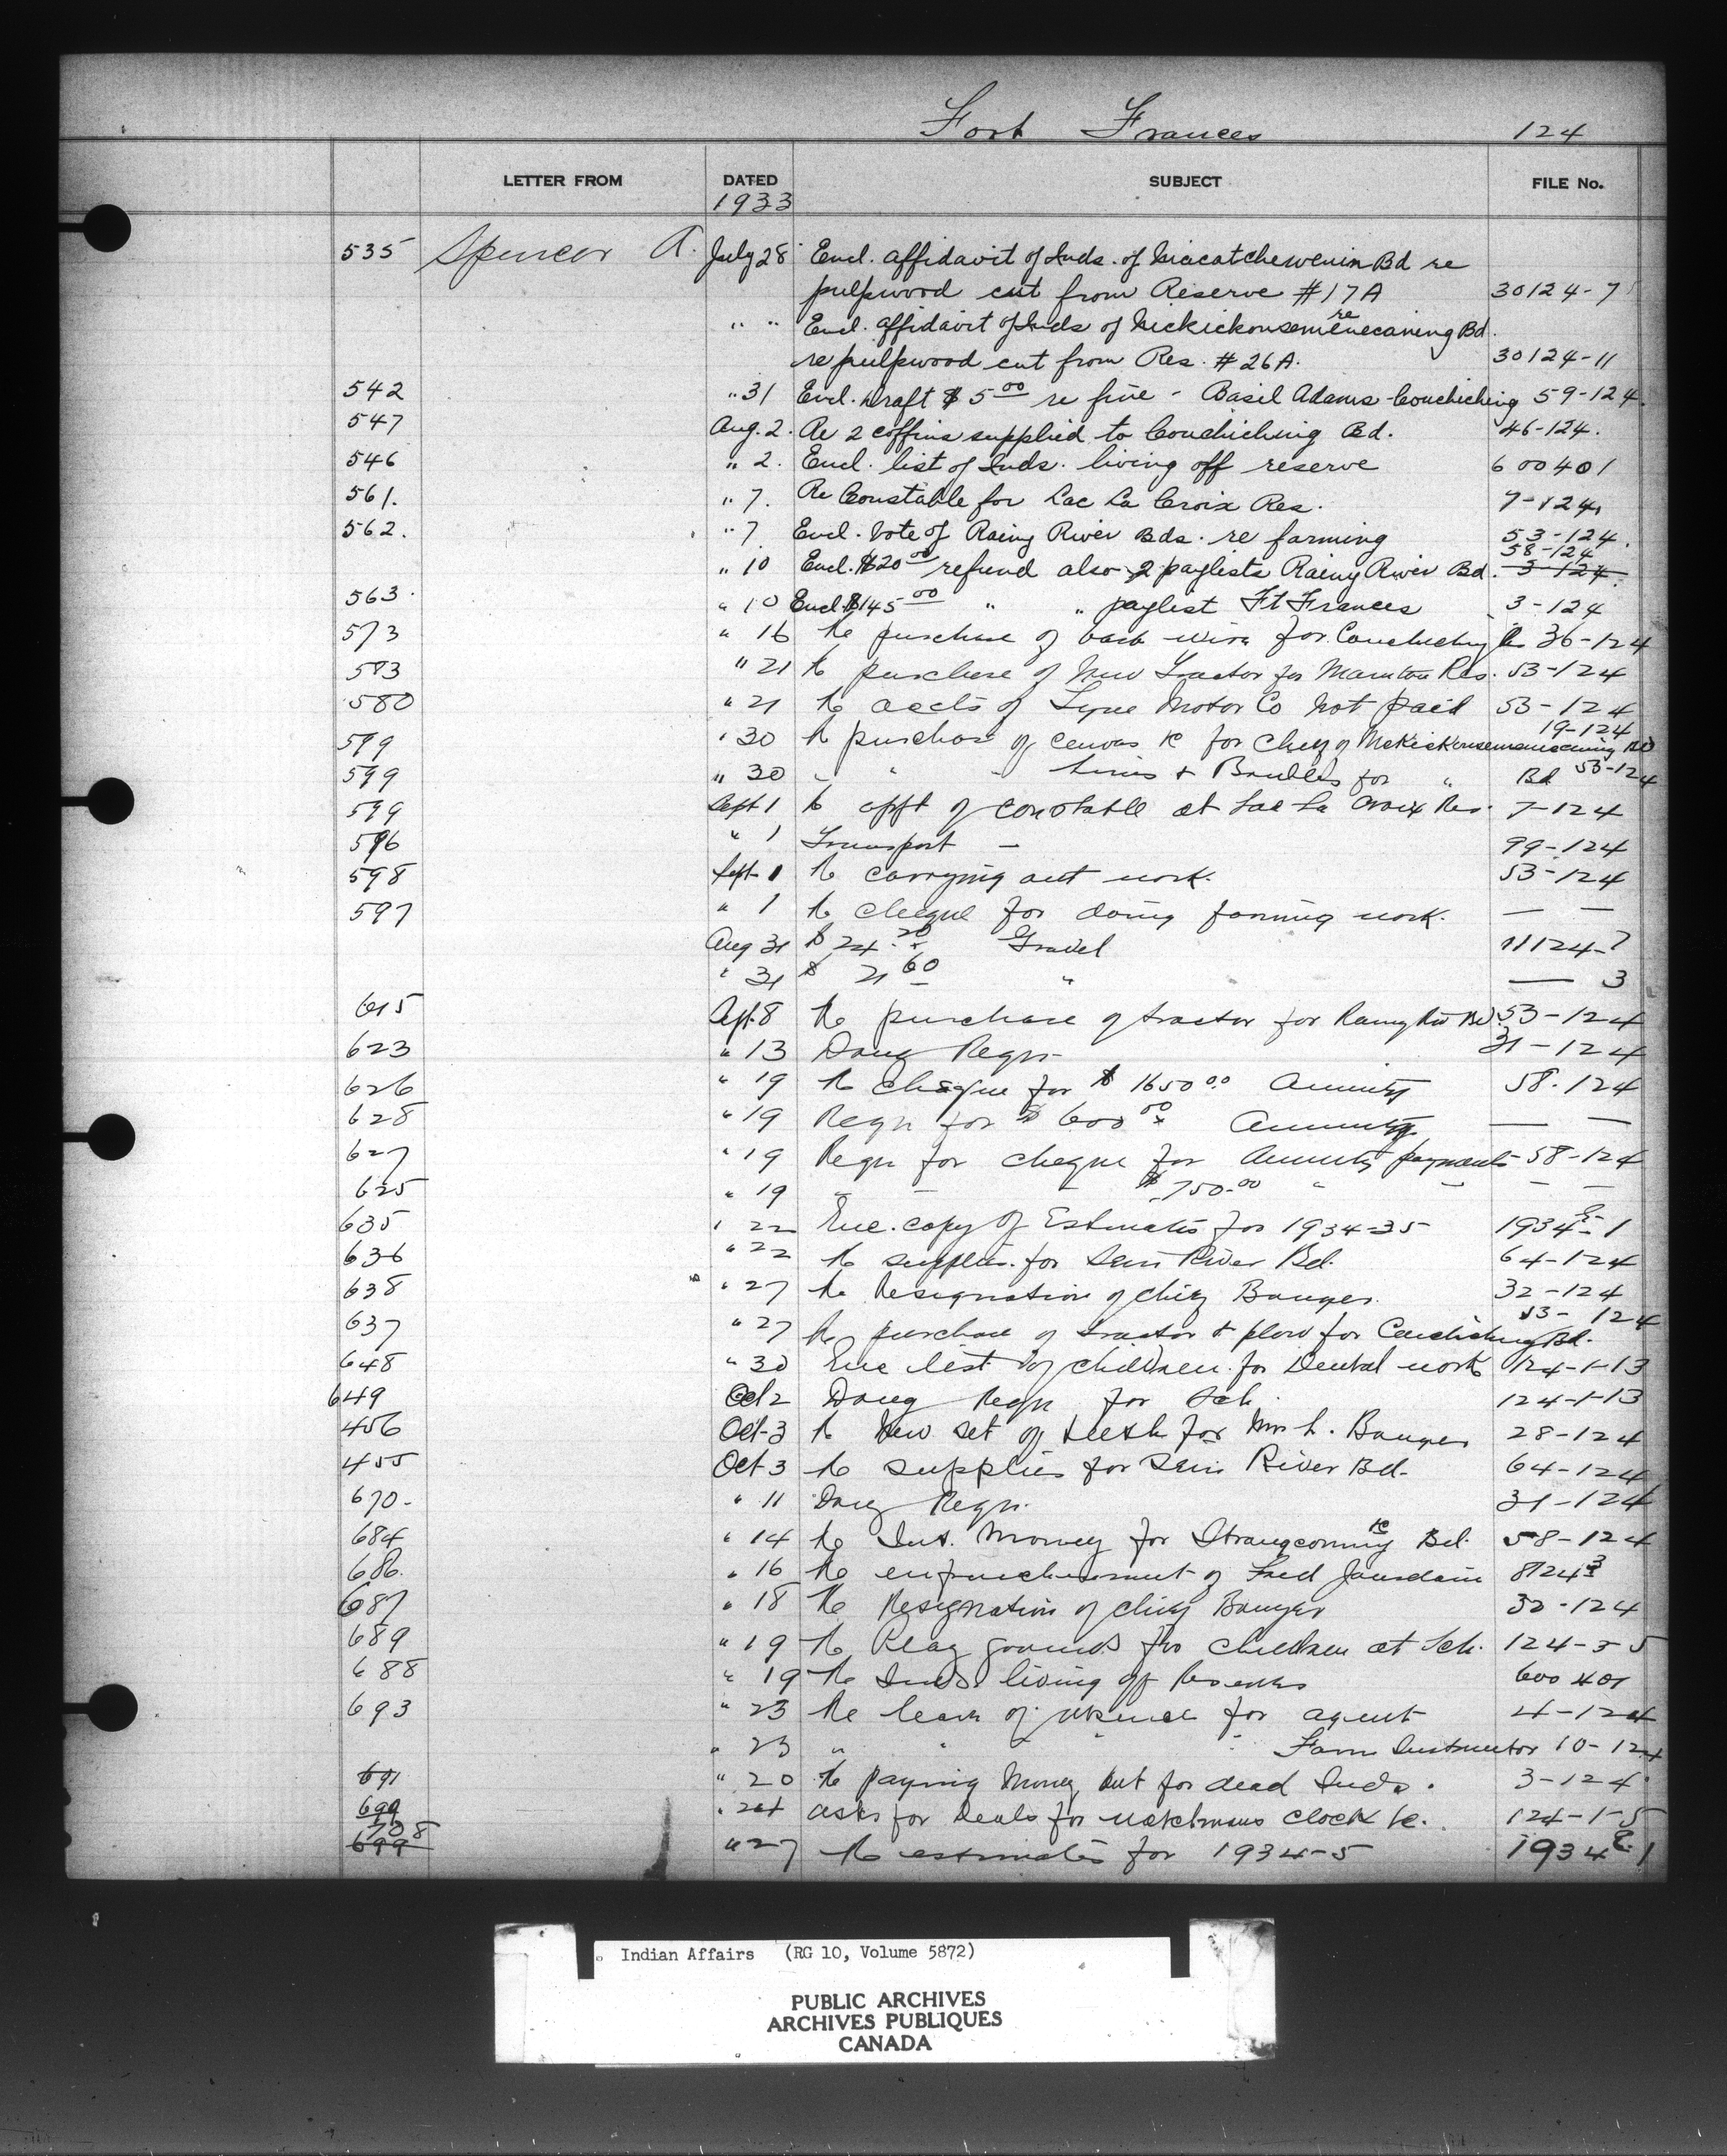 Fort Frances 124
LETTER FROM DATED SUBJECT FILE No.
1933
535 Spencer A. July 28 Encl. affidavit of Inds. of Niacatchewenin Bd re
pulpwood cut from Reserve #17A 30124-7
" " Encl. affidavit of Inds of Nickickonsemenecaning Bd. re
re pulpwood cut from Res. #26A. 30124-11
542 " 31 Encl. Draft $5.00 re fine - Basil Adams - Couchiching 59-124.
547 Aug. 2. Re 2 coffins supplied to Couchiching Bd. 46-124.
546 " 2. Encl. list of Inds. living off reserve 600401
561. " 7. Re Constable for Lac La Croix Res. 7-124.
562. " 7 Encl. Vote of Rainy River Bds. re farming 53-124.
58-124
" 10 Encl. $20.00 refund also 2 paylists Rainy River Bd. 3-124.
563. " 10 Encl. $145.00 " " paylist Ft Frances 3-124
573 " 16 Re purchase of barb wire for Couchiching 36-124
583 " 21 Re purchase of new Tractor for Manitou Res. 53-124
580 " 21 Re accts of Motor Co not paid 53-124
19-124
599 " 30 Re purchase of canvas &c for Chief of Bd
599 " 30 " " " & for " Bd 53-124
599 Sept 1 Re appt of constable at Lac La Croix Res. 7-124
596 " 1 Transport - 99-124
598 Sept 1 Re carrying out work. 53-124
597 " 1 Re cheque for doing farming work. — —
Aug 31 $24.20 Gravel 11124-7
" 31 $21.60 " — 3
615 Sept. 8 Re purchase of tractor for Rainy Riv Bd. 53-124
623 " 13 Drug Reqn. 31-124
626 " 19 Re cheque for $1650.00 Annuity 58-124
628 " 19 Reqn for $600.00 Annuity — —
627 " 19 Reqn for cheque for Annuity payments 58-124
625 " 19 " — " $750.00 " — — —
635 " 22 Enc. copy of Estimates for 1934-35 1934-1
636 " 22 Re supplies for Seine River Bd. 64-124
638 " 27 Re Resignation of Chief Bauger. 32-124
53-124
637 " 27 Re purchase of tractor & plow for Couchiching Bd.
648 " 30 Enc list of children for Dental work 124-1-13
649 Oct 2 Drug Reqn for Sch. 124-1-13
456 Oct-3 Re New set of teeth for Mrs 28-124
455 Oct 3 Re supplies for Seine River Bd. 64-124
670- " 11 Drug Reqn. 31-124
684 " 14 Re Int. Money for Strangecoming &c Bd. 58-124
686. " 16 Re enfranchisement of Fred Jourdain 8124-3
687 " 18 Re Resignation of Chief Bauger 32-124
689 " 19 Re Play grounds for children at Sch. 124-3-5
688 " 19 Re Inds living off Reserves 600401
693 " 23 Re leave of absence for agent 4-124
" 23 " " " Farm Instructor 10-124
691 " 20 Re paying Money out for dead Inds. 3-124
699 " 24 asks for Seals for watchmans clock &c. 124-1-5
708
699 " 27 Re estimates for 1934-5 1934 E.1
Indian Affairs (RG 10, Volume 5872)
PUBLIC ARCHIVES
ARCHIVES PUBLIQUES
CANADA